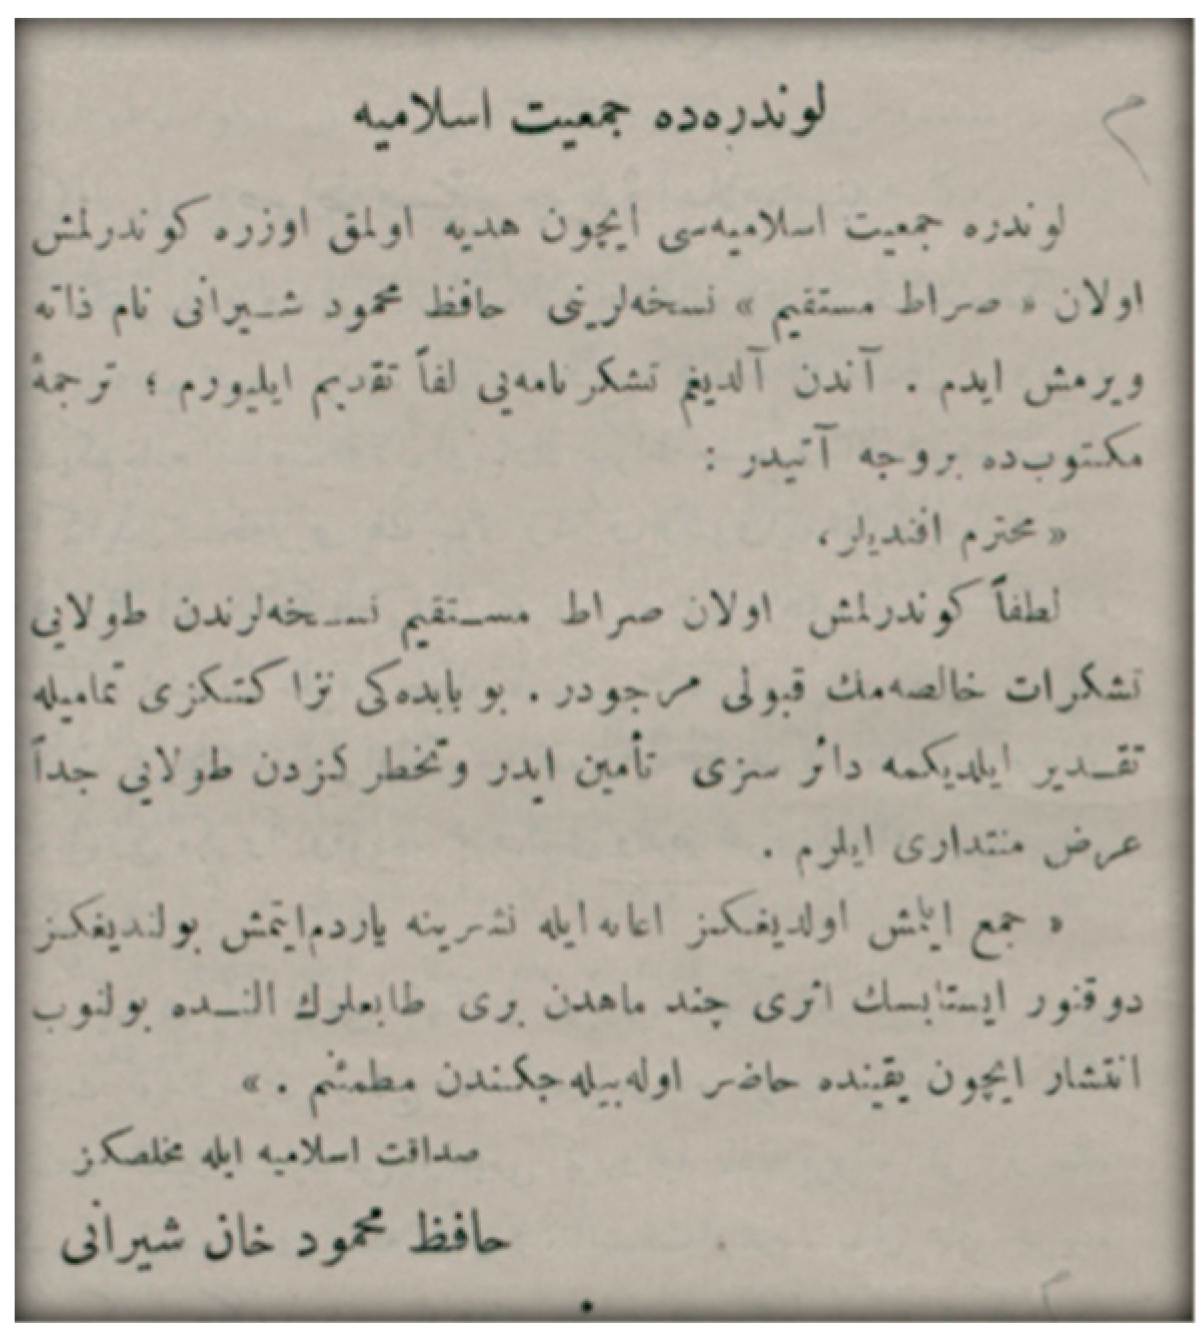 لوندره‌ده جمعیت اسلامیه
لوندره جمعیت اسلامیه‌سی ایچون هدیه اولمق اوزره كوندرلمش
اولان « صراط مستقیم » نسخه‌لرینی حافظ محمود شیرانی نام ذاته
ویرمش ایدم . آندن آلدیغم تشكرنامه‌یی لفاً تقدیم ایلیورم ؛ ترجمهٔ
مكتوب‌ده بروجه آتیدر :
« محترم افندیلر ،
لطفاً كوندرلمش اولان صراط مستقیم نسخه‌لرندن طولایی
تشكرات خالصه‌مك قبولی مرجودر . بو بابده‌كی نزاكتكزی تمامیله
تقدیر ایلدیكمه دائر سزی تأمین ایدر وتخطركزدن طولایی جداً
عرض منتداری ایلرم .
« جمع ایتمش اولدیغكز اعانه ایله نشرینه یاردم ایتمش بولندیغكز
دوقتور ایستابسك اثری چند ماهدن بری طابعلرك النده بولنوب
انتشار ایچون یقینده حاضر اوله‌بیله‌جكندن مطمئنم . »
صداقت اسلامیه ایله مخلصكز
حافظ محمود خان شیرانی